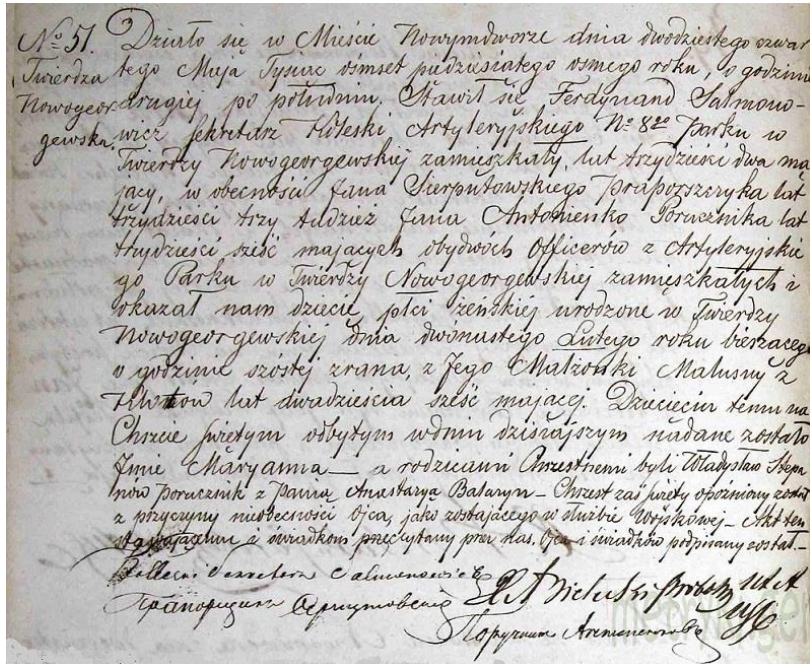 № 51. Działo się w Mieście Nowymdworze dnia dwudziestego czwar
Twierdza tego Maja Tysiąc ośmset pięćdziesiątego osmego roku, o godzinie
Nowogeor drugiej po południu. Stawił się Ferdynand Salmono-
gewska. wicz Sekretarz Artyleryjskiego № 8go Parku w
Twierdzy Nowogeorgewskiej zamieszkały, lat trzydzieści dwa ma
jący, w obecności Jana Sierputowskiego Praporszczyka lat
trzydzieści trzy tudzież Jana Antonienko Porucznika lat
trzydzieści sześć mających obydwóch Officerów z Artyleryjskie
go Parku w Twierdzy Nowogeorgewskiej zamieszkałych i
okazał nam dziecię płci żeńskiej urodzone w Twierdzy
Nowogeorgewskiej dnia dwónastego Lutego roku bieżącego
o godzinie szóstej zrana, z Jego Małżonki Malusny z
lat dwadzieścia sześć mającej. Dziecięciu temu na
Chrzcie świętym odbytym wdniu dzisiajszym nadane zostało
Jmie Maryanna — a rodzicami Chrzestnemi byli Władysław Stepa
nów Porucznik z Panią Anastazyą Bataryn — Chrzest zaś święty opozniony został
z przyczyny nieobecności Ojca, jako zostającego w służbie Wojskowej — Akt ten
stawającemu i świadkom przeczytany przez nas, Ojca i świadków podpisany został —